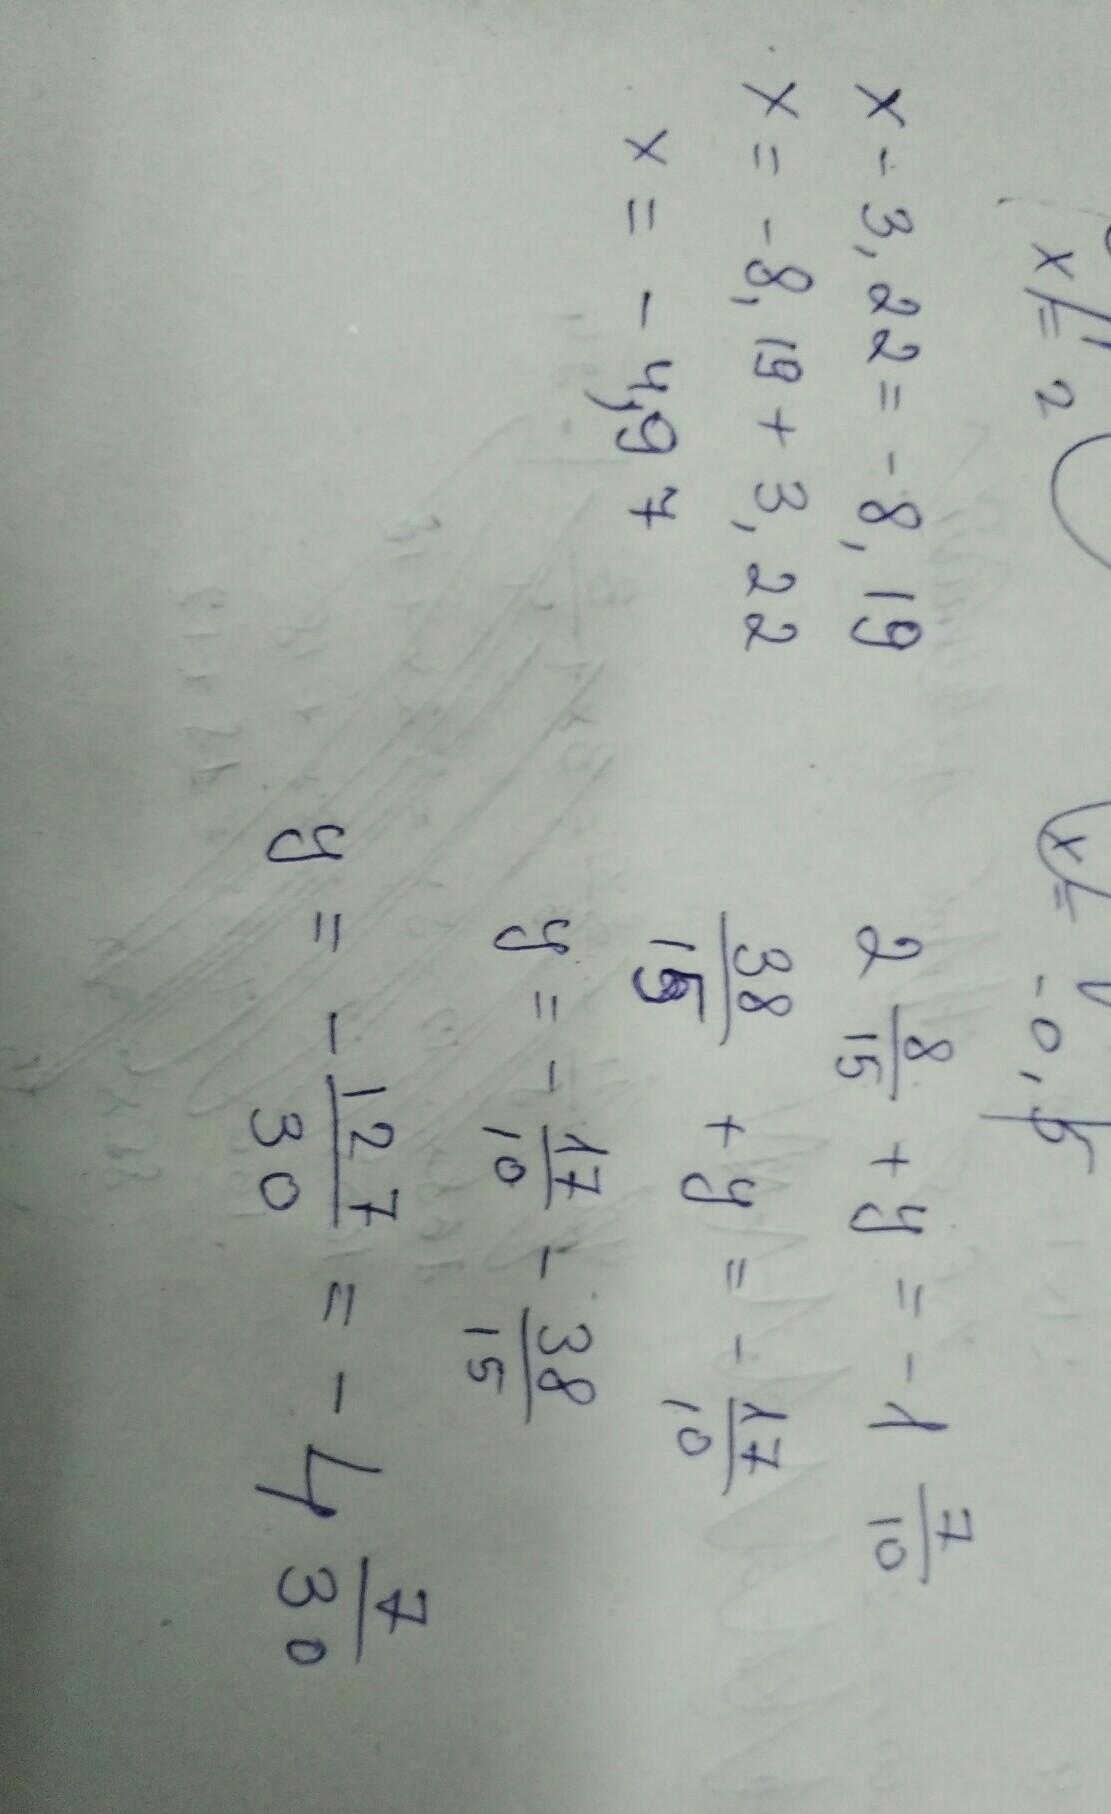 x = 2
x = -0,5
x - 3,22 = -8,19
x = -8,19 + 3,22
x = -4,97
2 8/15 + y = -1 7/10
38/15 + y = -17/10
y = -17/10 - 38/15
y = -127/30 = -4 7/30